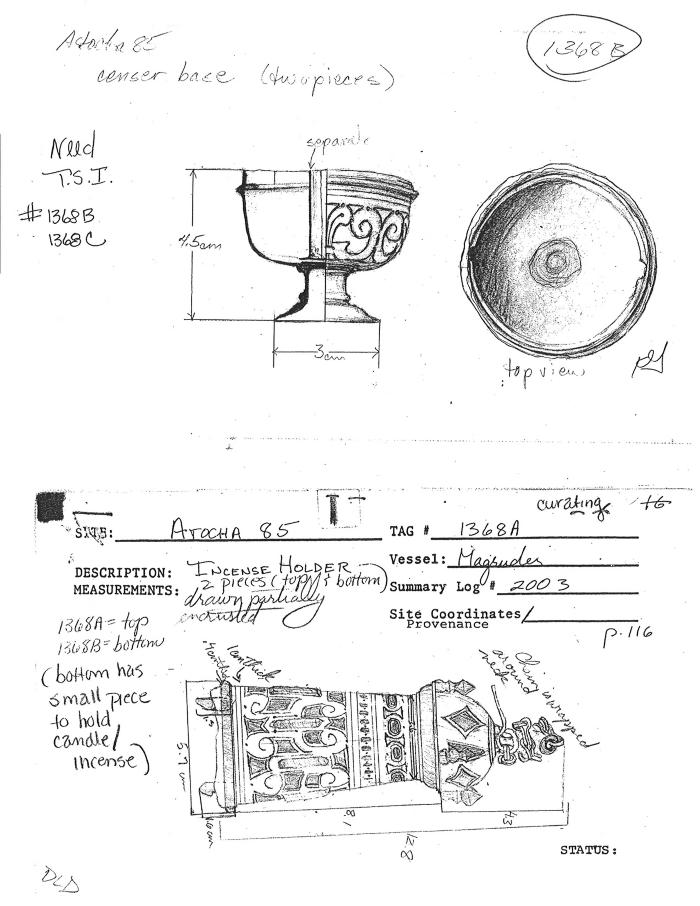 Atocha 85
1368 B
censer base (two pieces)
Need
T.S.I.
#1368B
1368C
separate
4.5cm
3cm
top view
curating
16
SITE: ATOCHA 85
TAG # 1368A
DESCRIPTION: INCENSE HOLDER
Vessel: Magruder
MEASUREMENTS: 2 pieces (top & bottom)
Summary Log # 2003
drawn partially
encrusted
Site Coordinates/
Provenance
p.116
1368A = top
1368B = bottom
(bottom has
small piece
to hold
candle/
incense)
1cm thick
Chain wrapped
around
neck
5.7
8.1
4.3
12.8
STATUS:
DLD